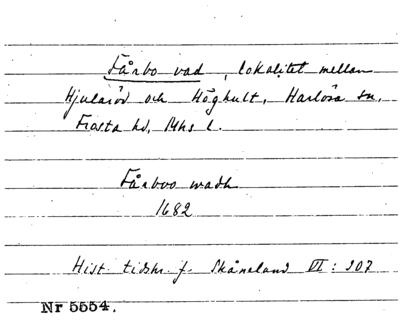 Fårbo vad, lokalitet mellan
Hjularöd och Höghult, Harlösa sn,
Frosta hd, Mhs l.
Fårboo wadh
1682
Hist. tidskr. f. Skåneland VI: 307
Nr 5554.